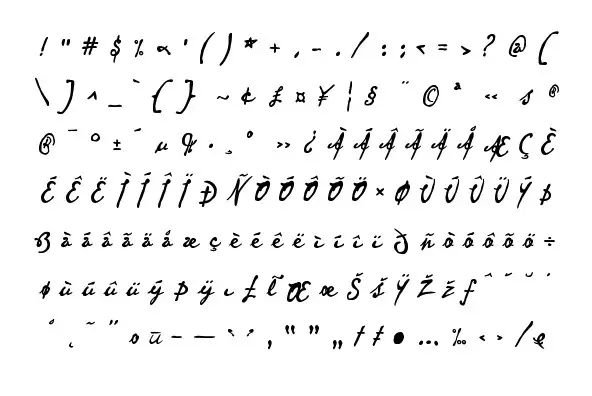 ! " # $ % & ' ( ) * + , - . / : ; < = > ? @ [
\ ] ^ _ ` { } ~ ¢ £ ¤ ¥ ¦ § ¨ © ª «
® ¯ ° ± ´ µ · ¸ º » ¿ À Á Â Ã Ä Å Æ Ç È
É Ê Ë Ì Í Î Ï Ð Ñ Ò Ó Ô Õ Ö × Ø Ù Ú Û Ü Ý Þ
ß à á â ã ä å æ ç è é ê ë ì í î ï ð ñ ò ó ô õ ö ÷
ø ù ú û ü ý þ ÿ ı Ł Œ œ Š š Ÿ Ž ž ƒ ˆ ˇ ˘ ˙
˚ ˛ ˜ ˝ – — ‘ ’ ‚ “ ” „ † ‡ • … ‰ ‹ › ⁄